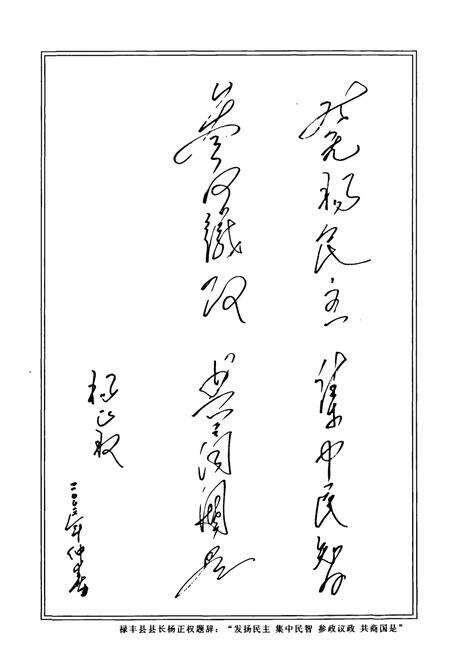 發揚民主 集中民智
參政議政 共商國是
杨正权
仲春
禄丰县县长杨正权题辞：“发扬民主 集中民智 参政议政 共商国是”